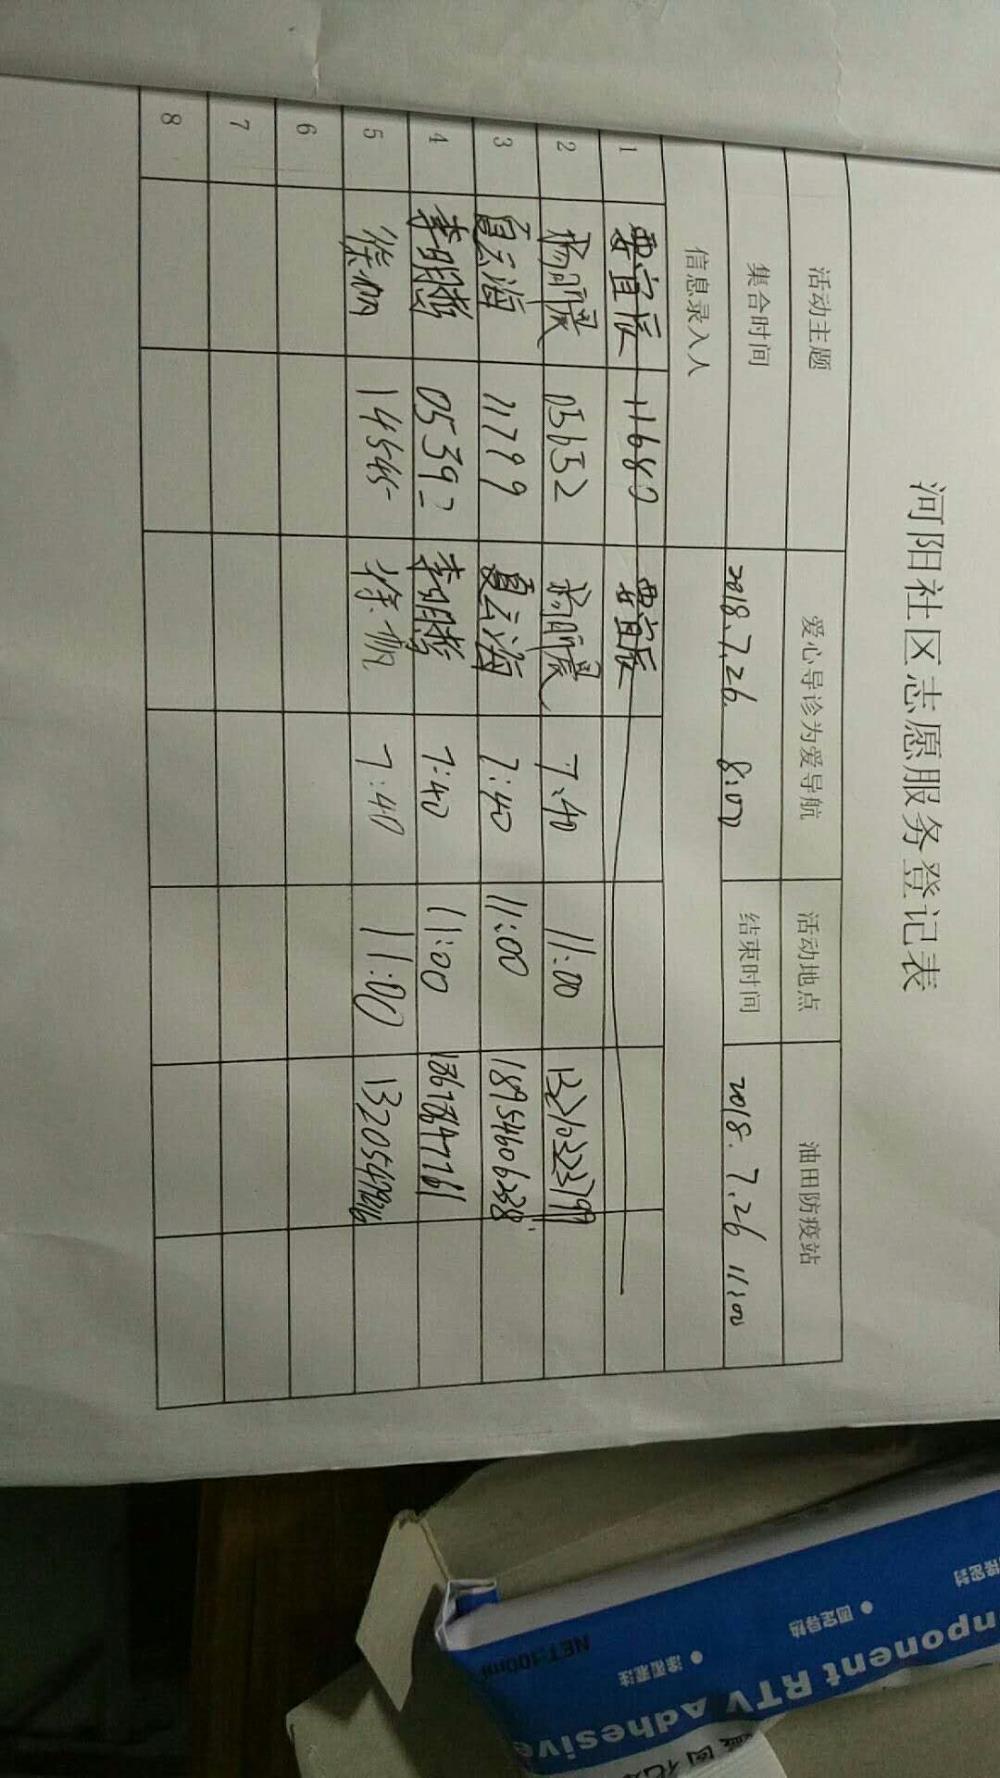 河阳社区志愿服务登记表
活动主题 爱心导诊为爱导航 活动地点 油田防疫站
集合时间 2018.7.26 8:00 结束时间 2018.7.26 11:00
信息录入人
1 要宜辰 11680 要宜辰
2 杨丽晨 05652 杨丽晨 7:40 11:00
3 夏云海 11799 夏云海 7:40 11:00 18954606288
4 李明鹏 05392 李明鹏 7:40 11:00
5 徐帆 14545 徐帆 7:40 11:00
6
7
8
固定导热
涂覆灌注
NET:100ml
nponent RTV Adhesive